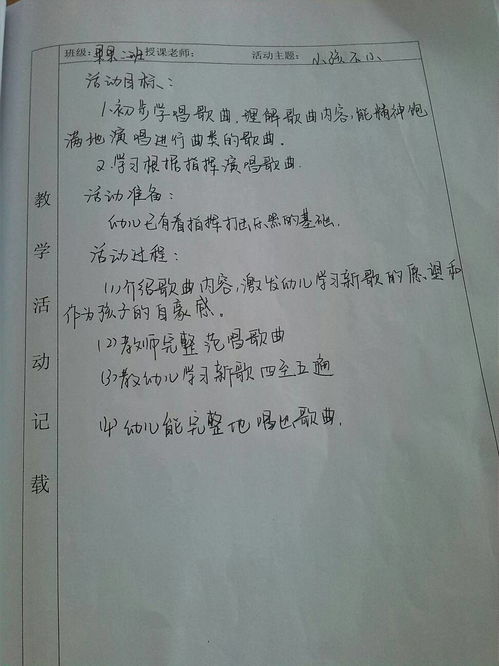 班级:果果二班授课老师: 活动主题: 小孩不小
活动目标:
1.初步学唱歌曲.理解歌曲内容,能精神饱
满地演唱进行曲类的歌曲.
2.学习根据指挥演唱歌曲.
活动准备:
幼儿已有看指挥打击乐器的基础.
活动过程:
(1)介绍歌曲内容,激发幼儿学习新歌的愿望和
作为孩子的自豪感。
(2)教师完整范唱歌曲
(3)教幼儿学习新歌四至五遍
(4)幼儿能完整地唱出歌曲.
教学活动记载